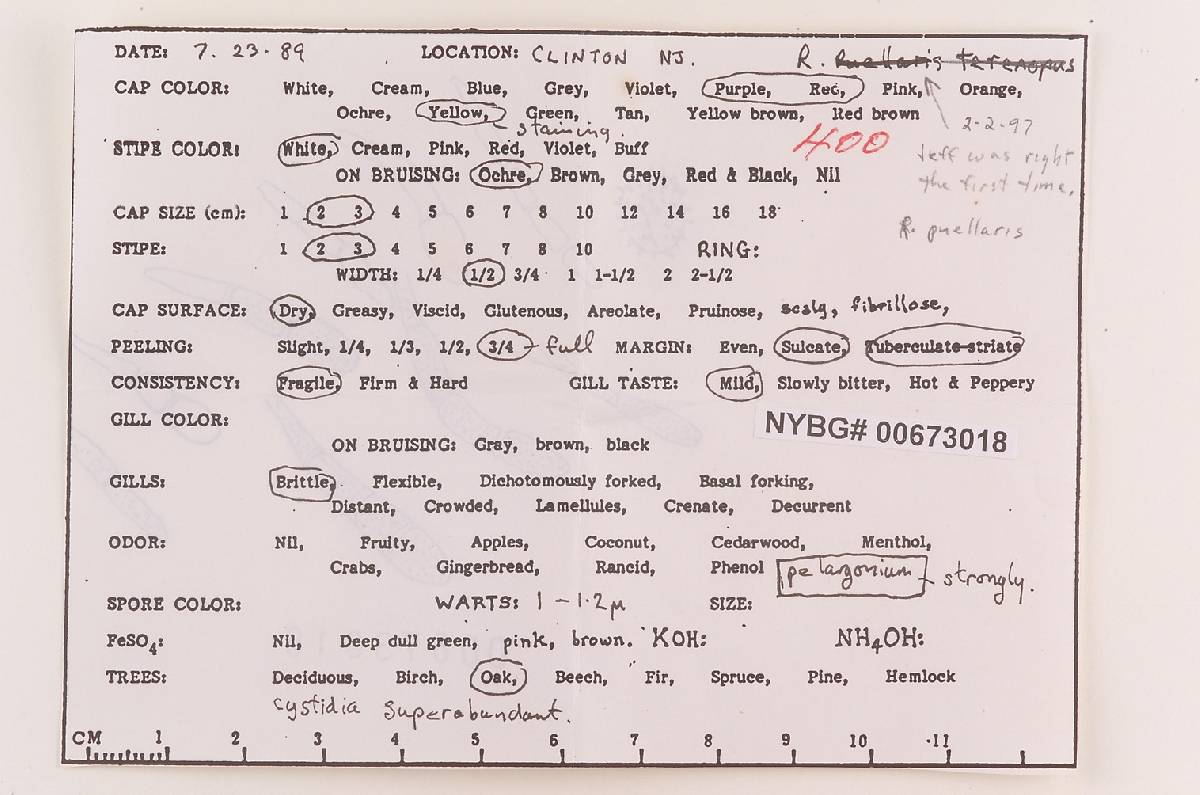 DATE: 7. 23. 89 LOCATION: CLINTON NJ. R. puellaris terenopus
CAP COLOR: White, Cream, Blue, Grey, Violet, Purple, Red, Pink, Orange,
Ochre, Yellow, Green, Tan, Yellow brown, Red brown
staining. 2-2-97
STIPE COLOR: White, Cream, Pink, Red, Violet, Buff 400 Jeff was right
ON BRUISING: Ochre, Brown, Grey, Red & Black, Nil the first time.
CAP SIZE (cm): 1 2 3 4 5 6 7 8 10 12 14 16 18
R. puellaris
STIPE: 1 2 3 4 5 6 7 8 10 RING:
WIDTH: 1/4 1/2 3/4 1 1-1/2 2 2-1/2
CAP SURFACE: Dry, Greasy, Viscid, Glutenous, Areolate, Pruinose, scaly, fibrillose,
PEELING: Slight, 1/4, 1/3, 1/2, 3/4 - full MARGIN: Even, Sulcate, Tuberculate-striate
CONSISTENCY: Fragile, Firm & Hard GILL TASTE: Mild, Slowly bitter, Hot & Peppery
GILL COLOR:
NYBG# 00673018
ON BRUISING: Gray, brown, black
GILLS: Brittle, Flexible, Dichotomously forked, Basal forking,
Distant, Crowded, Lamellules, Crenate, Decurrent
ODOR: Nil, Fruity, Apples, Coconut, Cedarwood, Menthol,
Crabs, Gingerbread, Rancid, Phenol pelargonium - strongly.
SPORE COLOR: WARTS: 1 - 1.2µ SIZE:
FeSO₄: Nil, Deep dull green, pink, brown. KOH: NH₄OH:
TREES: Deciduous, Birch, Oak, Beech, Fir, Spruce, Pine, Hemlock
cystidia superabundant.
CM 1 2 3 4 5 6 7 8 9 10 11